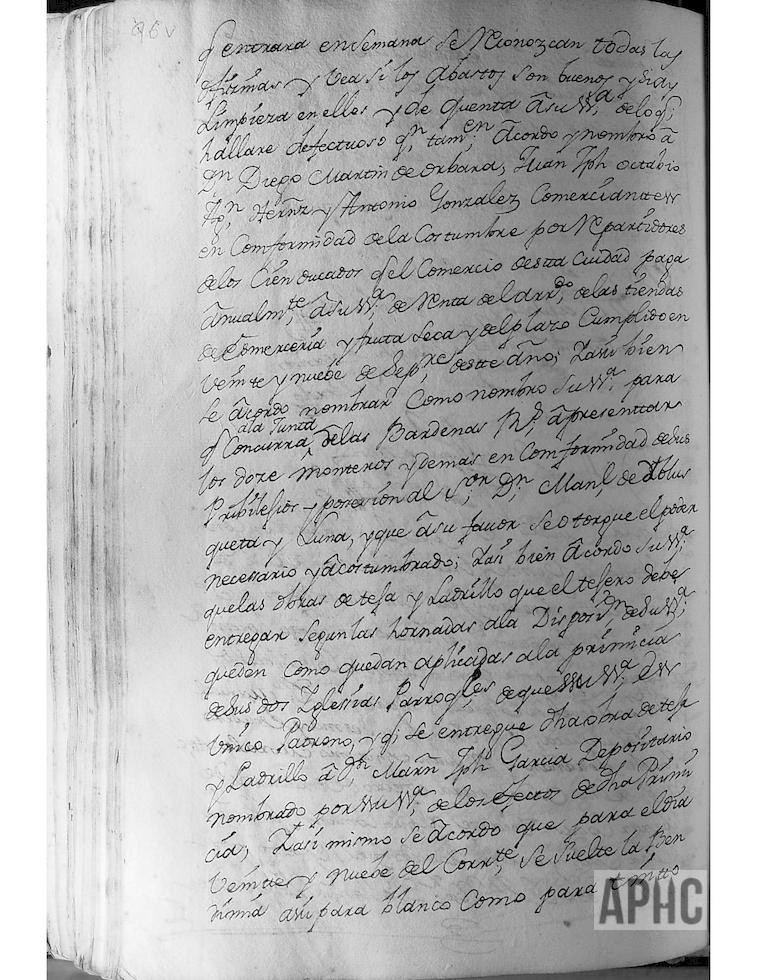 96v
q̃ entrara en semana se Reconozcan todas las
firmas y vea si los abastos son buenos y si ay
Limpieza en ellos y de quenta â su Sª de lo q̃
hallare defectuoso qⁿ tamⁿ; acordo y nombro â
Dⁿ Diego Martin de Orbara, Juan Jph octabio
Hernz y Antonio Gonzalez Comerciantes
en Comformidad de la Costumbre por Repartidores
de los Cien ducados q̃ el Comercio desta Ciudad paga
ânualmᵗᵉ â su Sª de Renta del arrᵈᵒ de las tiendas
de Comerceria y fruta seca y del plazo Cumplido en
Veinte y nuebe de Sepʳᵉ deste año; Iasi bien
se acordo nombrar Como nombro su Sª para
q̃ Concurra a la Junta de las Bardenas Rˢ a presentar
los doze monteros y demas en Comformidad de sus
Pribilesios y possesion al Sᵒʳ Dⁿ Manˡ de Blus
queta y Luna, y que â su fauor se otorgue el poder
necessario y acostumbrado; Iasi bien acordo su Sª
que las obras de teja y Ladrillo que el tejero debe
entregar segun las hornadas a la Disposⁿ de su Sª
queden Como quedan aplicadas a la primicia
de sus dos Iglesias Parroqˡᵉˢ de que su Sª es
Vnico Patrono, y q̃ se entregue dha obra de teja
y Ladrillo â Dⁿ Marñ Jph Garcia Depositario
nombrado por su Sª de los efectos de dha Primi
cia; Iasi mismo se acordo que para el dia
Veinte y nuebe del Corrᵗᵉ se suelte la Ben
dimia asi para blanco Como para tinto
APHC